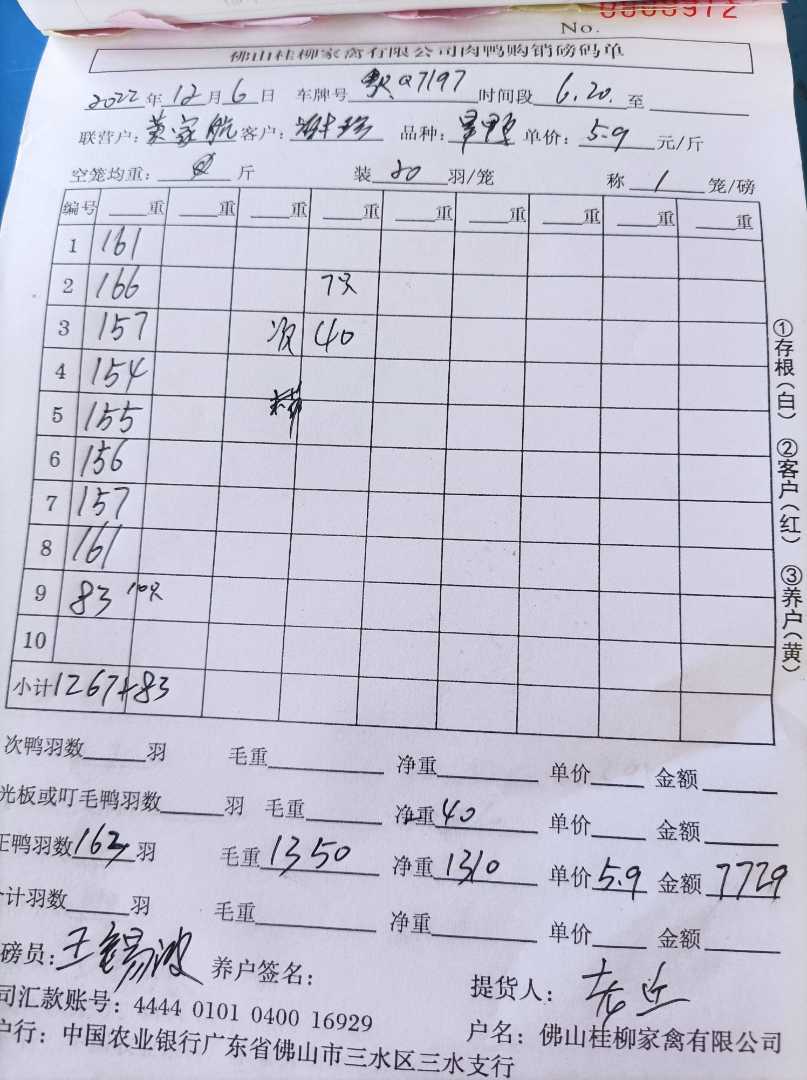 0008972
No.
佛山桂柳家禽有限公司肉鸭购销磅码单
2022年12月6日 车牌号 粤Q7197 时间段 6.20. 至
联营户: 莫家航 客户: 品种: 单价: 5.9 元/斤
空笼均重: 斤 装 20 羽/笼 称 1 笼/磅
编号 重 重 重 重 重 重 重 重 重
1 161
2 166 7只
3 157 次 40
4 154
5 155
6 156
7 157
8 161
9 83 10只
10
小计 1267+83
①存根(白) ②客户(红) ③养户(黄)
次鸭羽数 羽 毛重 净重 单价 金额
光板或叮毛鸭羽数 羽 毛重 净重 40 单价 金额
正鸭羽数 163 羽 毛重 1350 净重 1310 单价 5.9 金额 7729
计羽数 羽 毛重 净重 单价 金额
磅员: 王锡波 养户签名: 提货人:
司汇款账号: 4444 0101 0400 16929 户名: 佛山桂柳家禽有限公司
户行: 中国农业银行广东省佛山市三水区三水支行